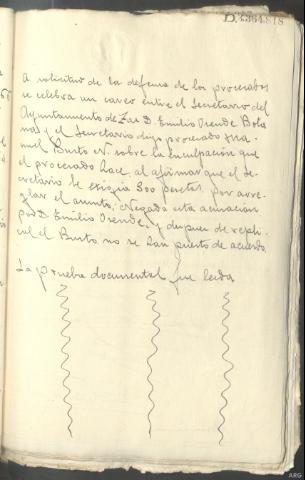 D.5364.818
A solicitud de la defensa de los procesados
se celebra un careo entre el Secretario del
Ayuntamiento de Zas D. Emilio Isende Bola
nas y el Secretario digo procesado Ma-
nuel Busto N sobre la inculpación que
el procesado hace, al afirmar que el Se-
cretario le exigía 300 pesetas por arre-
glar el asunto; Negada esta acusación
por D. Emilio Isende, y despues de repli-
car el Busto, no se han puesto de acuerdo
La prueba documental fue leida
ARG